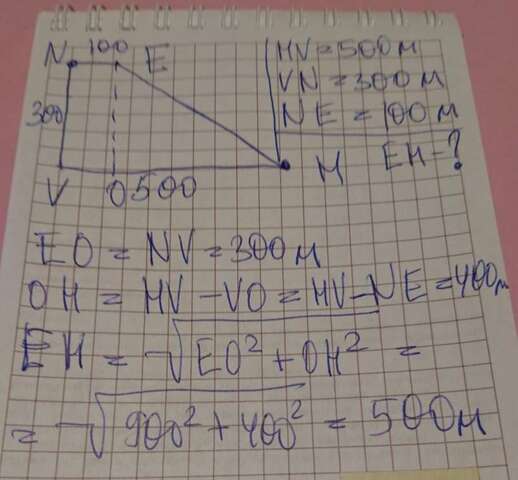 N 100 E
300
V O 500 H
HV = 500 м
VN = 300 м
NE = 100 м
EH - ?
EO = NV = 300 м
OH = HV - VO = HV - NE = 400 м
EH = √EO² + OH² =
= √900² + 400² = 500 м